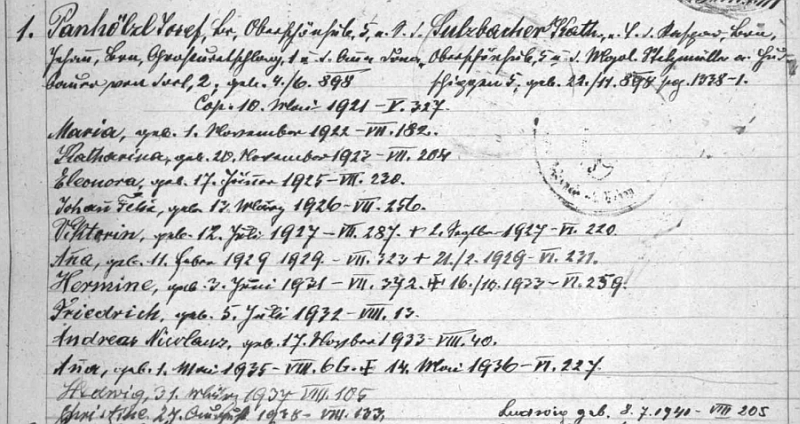 1. Panhölzl Josef, Br, Oberschönhub, 5, u. S. d. Sulzbacher Kath., u. T. d. Kaspar, Brn,
Johann, Brn, 1 u. d. Anna Oberschönhub, 5 u. d. Stelzmüller
2, geb. 4./6. 898 5, geb. 22./11. 898 pg. 1338-1.
Cop. 10. Mai 1921 - V. 327.
Maria, geb. 1. November 1922 - VII. 182.
Katharina, geb. 20. November 1923 - VII. 204
Eleonora, geb. 17. Jänner 1925 - VII. 230.
Johann Felix, geb. 13. März 1926 - VII. 256.
Viktorin, geb. 12. Juli 1927 - VII. 287 + 2. Septbr 1927 - VI. 220
Aña, geb. 11. Feber 1929 1929 - VII. 323 + 21./2. 1929 - VI. 231.
Hermine, geb. 3. Juni 1931 - VII. 372. + 16./10. 1933 - VI. 259.
Friedrich, geb. 5. Juli 1932 - VIII. 13.
Andreas Nicolaus, geb. 17. Novber 1933 - VIII. 40.
Aña, geb. 1. Mai 1935 - VIII. 66. + 14. Mai 1936 - VI. 227.
Hedwig, 31. März 1937 VIII. 105
Christine 27. August 1938 - VIII. 133.
Ludwig geb. 8.7.1940 - VIII 205